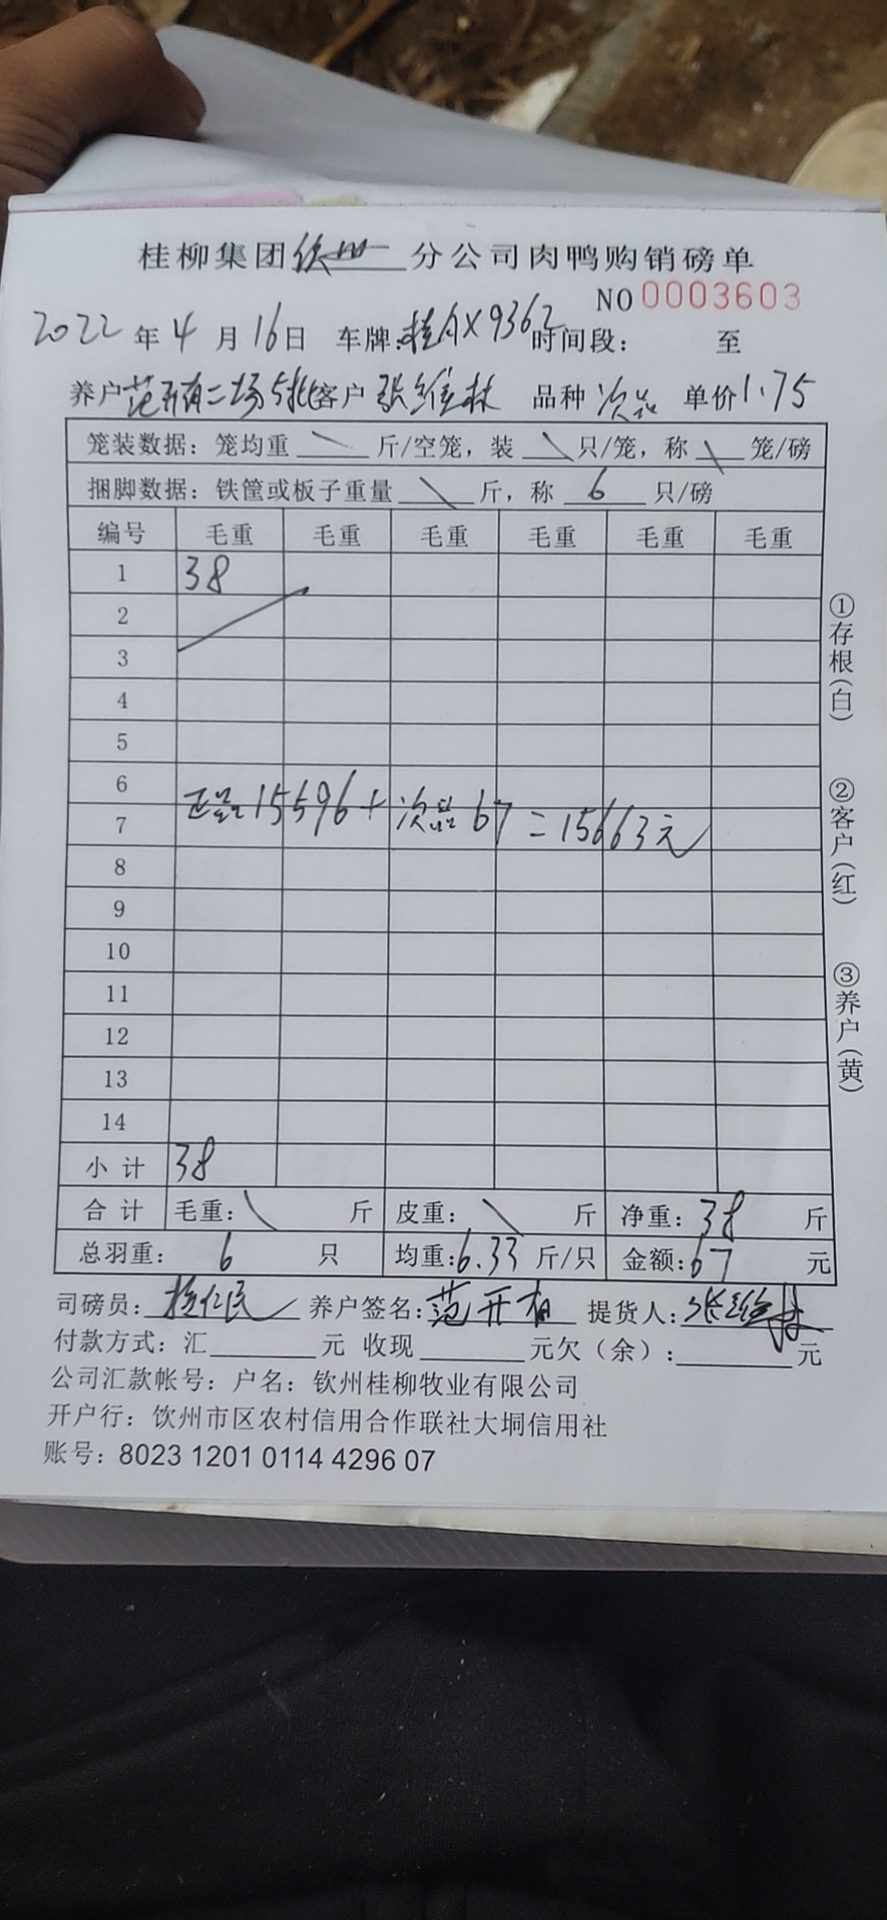 桂柳集团钦州分公司肉鸭购销磅单
NO 0003603
2022年4月16日 车牌:桂AX9362 时间段: 至
养户范开有二场5批客户张维林 品种次品 单价1.75
笼装数据:笼均重 斤/空笼,装 只/笼,称 笼/磅
捆脚数据:铁筐或板子重量 斤,称6只/磅
编号 毛重 毛重 毛重 毛重 毛重 毛重
1 38
2
3
4
5
6
7
正品15596+次品67=15663元
8
9
10
11
12
13
14
小计 38
合计 毛重: 斤 皮重: 斤 净重:38斤
总羽重:6只 均重:6.33斤/只 金额:67元
司磅员:杨仁民 养户签名:范开有 提货人:张维林
付款方式:汇 元 收现 元欠(余): 元
公司汇款帐号:户名:钦州桂柳牧业有限公司
开户行:饮州市区农村信用合作联社大垌信用社
账号:8023 1201 0114 4296 07
①存根(白)
②客户(红)
③养户(黄)